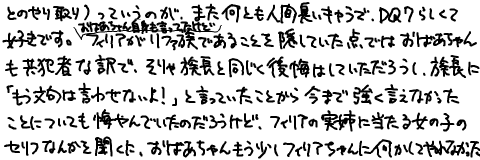 とのやり取り)っていうのが、また何とも人間臭いキャラで、DQ7らしくて
おばあちゃん自身も言ってたけど
好きです。フィリアがリファ族であることを隠していた点ではおばあちゃん
も共犯者な訳で、そりゃ族長と同じく後悔はしていただろうし、族長に
「もう文句は言わせないよ!」と言っていたことから今まで強く言えなかった
ことについても悔やんでいたのだろうけど、フィリアの実姉に当たる女の子の
セリフなんかを聞くに、おばあちゃんもう少しフィリアちゃんに何かしてやれなかった